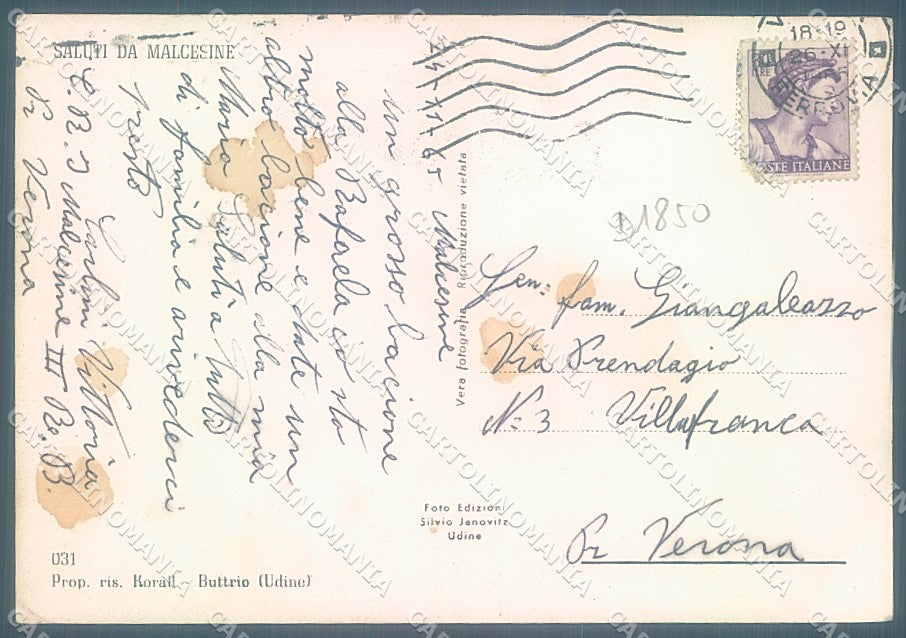 SALUTI DA MALCESINE
24-11-65 Malcesine
un grosso bacione
alla Rafaela cio sto
molto bene e state un
altro bacione alla mia
Maria Saluti a tutti
di familia e arivederci
presto
Carlini Vittoria
C.R.I Malcesine III Re. B.
Pr Verona
031
Prop. ris. Korail - Buttrio (Udine)
Vera fotografia Riproduzione vietata
Foto Edizioni
Silvio Janovitz
Udine
18-19
26 XI
POSTE ITALIANE
D1850
Gen: fam. Giangaleazzo
Via Prendagio
N: 3 Villafranca
Pr Verona
CARTOLINOMANIA